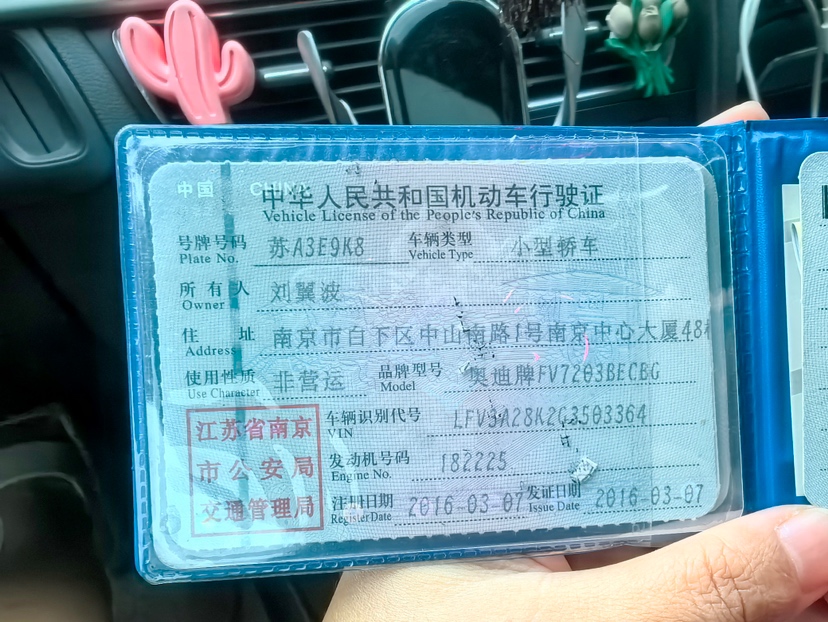 中国 CHINA
中华人民共和国机动车行驶证
Vehicle License of the People's Republic of China
号牌号码 苏A3E9K8 车辆类型 小型轿车
Plate No. Vehicle Type
所有人 刘翼波
Owner
住址 南京市白下区中山南路1号南京中心大厦48
Address
使用性质 非营运 品牌型号 奥迪牌FV7203BECBG
Use Character Model
江苏省南京
市公安局
交通管理局
车辆识别代号 LFV3A28K2G3503364
VIN
发动机号码 182225
Engine No.
注册日期 2016-03-07 发证日期 2016-03-07
Register Date Issue Date